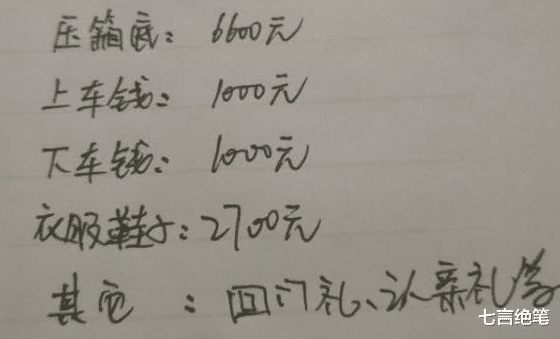 压箱底：6600元
上车钱：1000元
下车钱：1000元
衣服鞋子：2700元
其它：回门礼、认亲礼等
七言绝笔